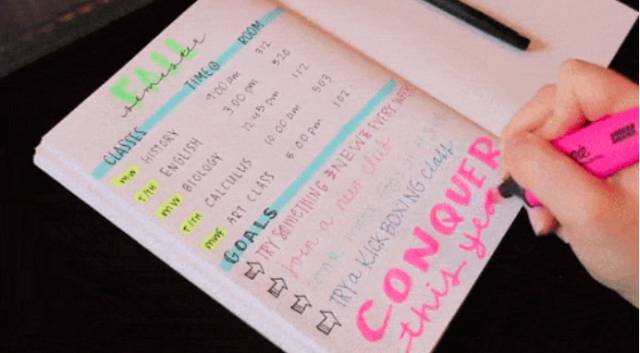 FALL
semester
CLASSES TIME ROOM
MW HISTORY 9:00 am 312
T/TH ENGLISH 3:00 pm 526
MW BIOLOGY 12:45 pm 112
T/TH CALCULUS 10:00 am 503
MWF ART CLASS 6:00 pm 102
GOALS
TRY SOMETHING NEW EVERY
join a new club
TRY a KICKBOXING Class
CONQUER
this year